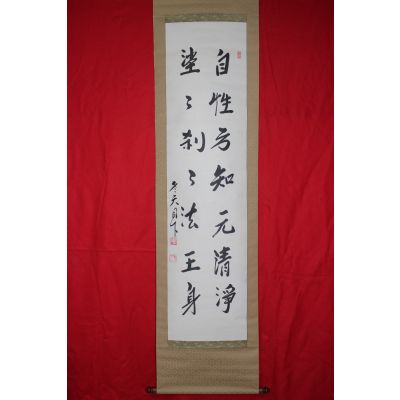 自性方知元清淨
塵々刹々法王身